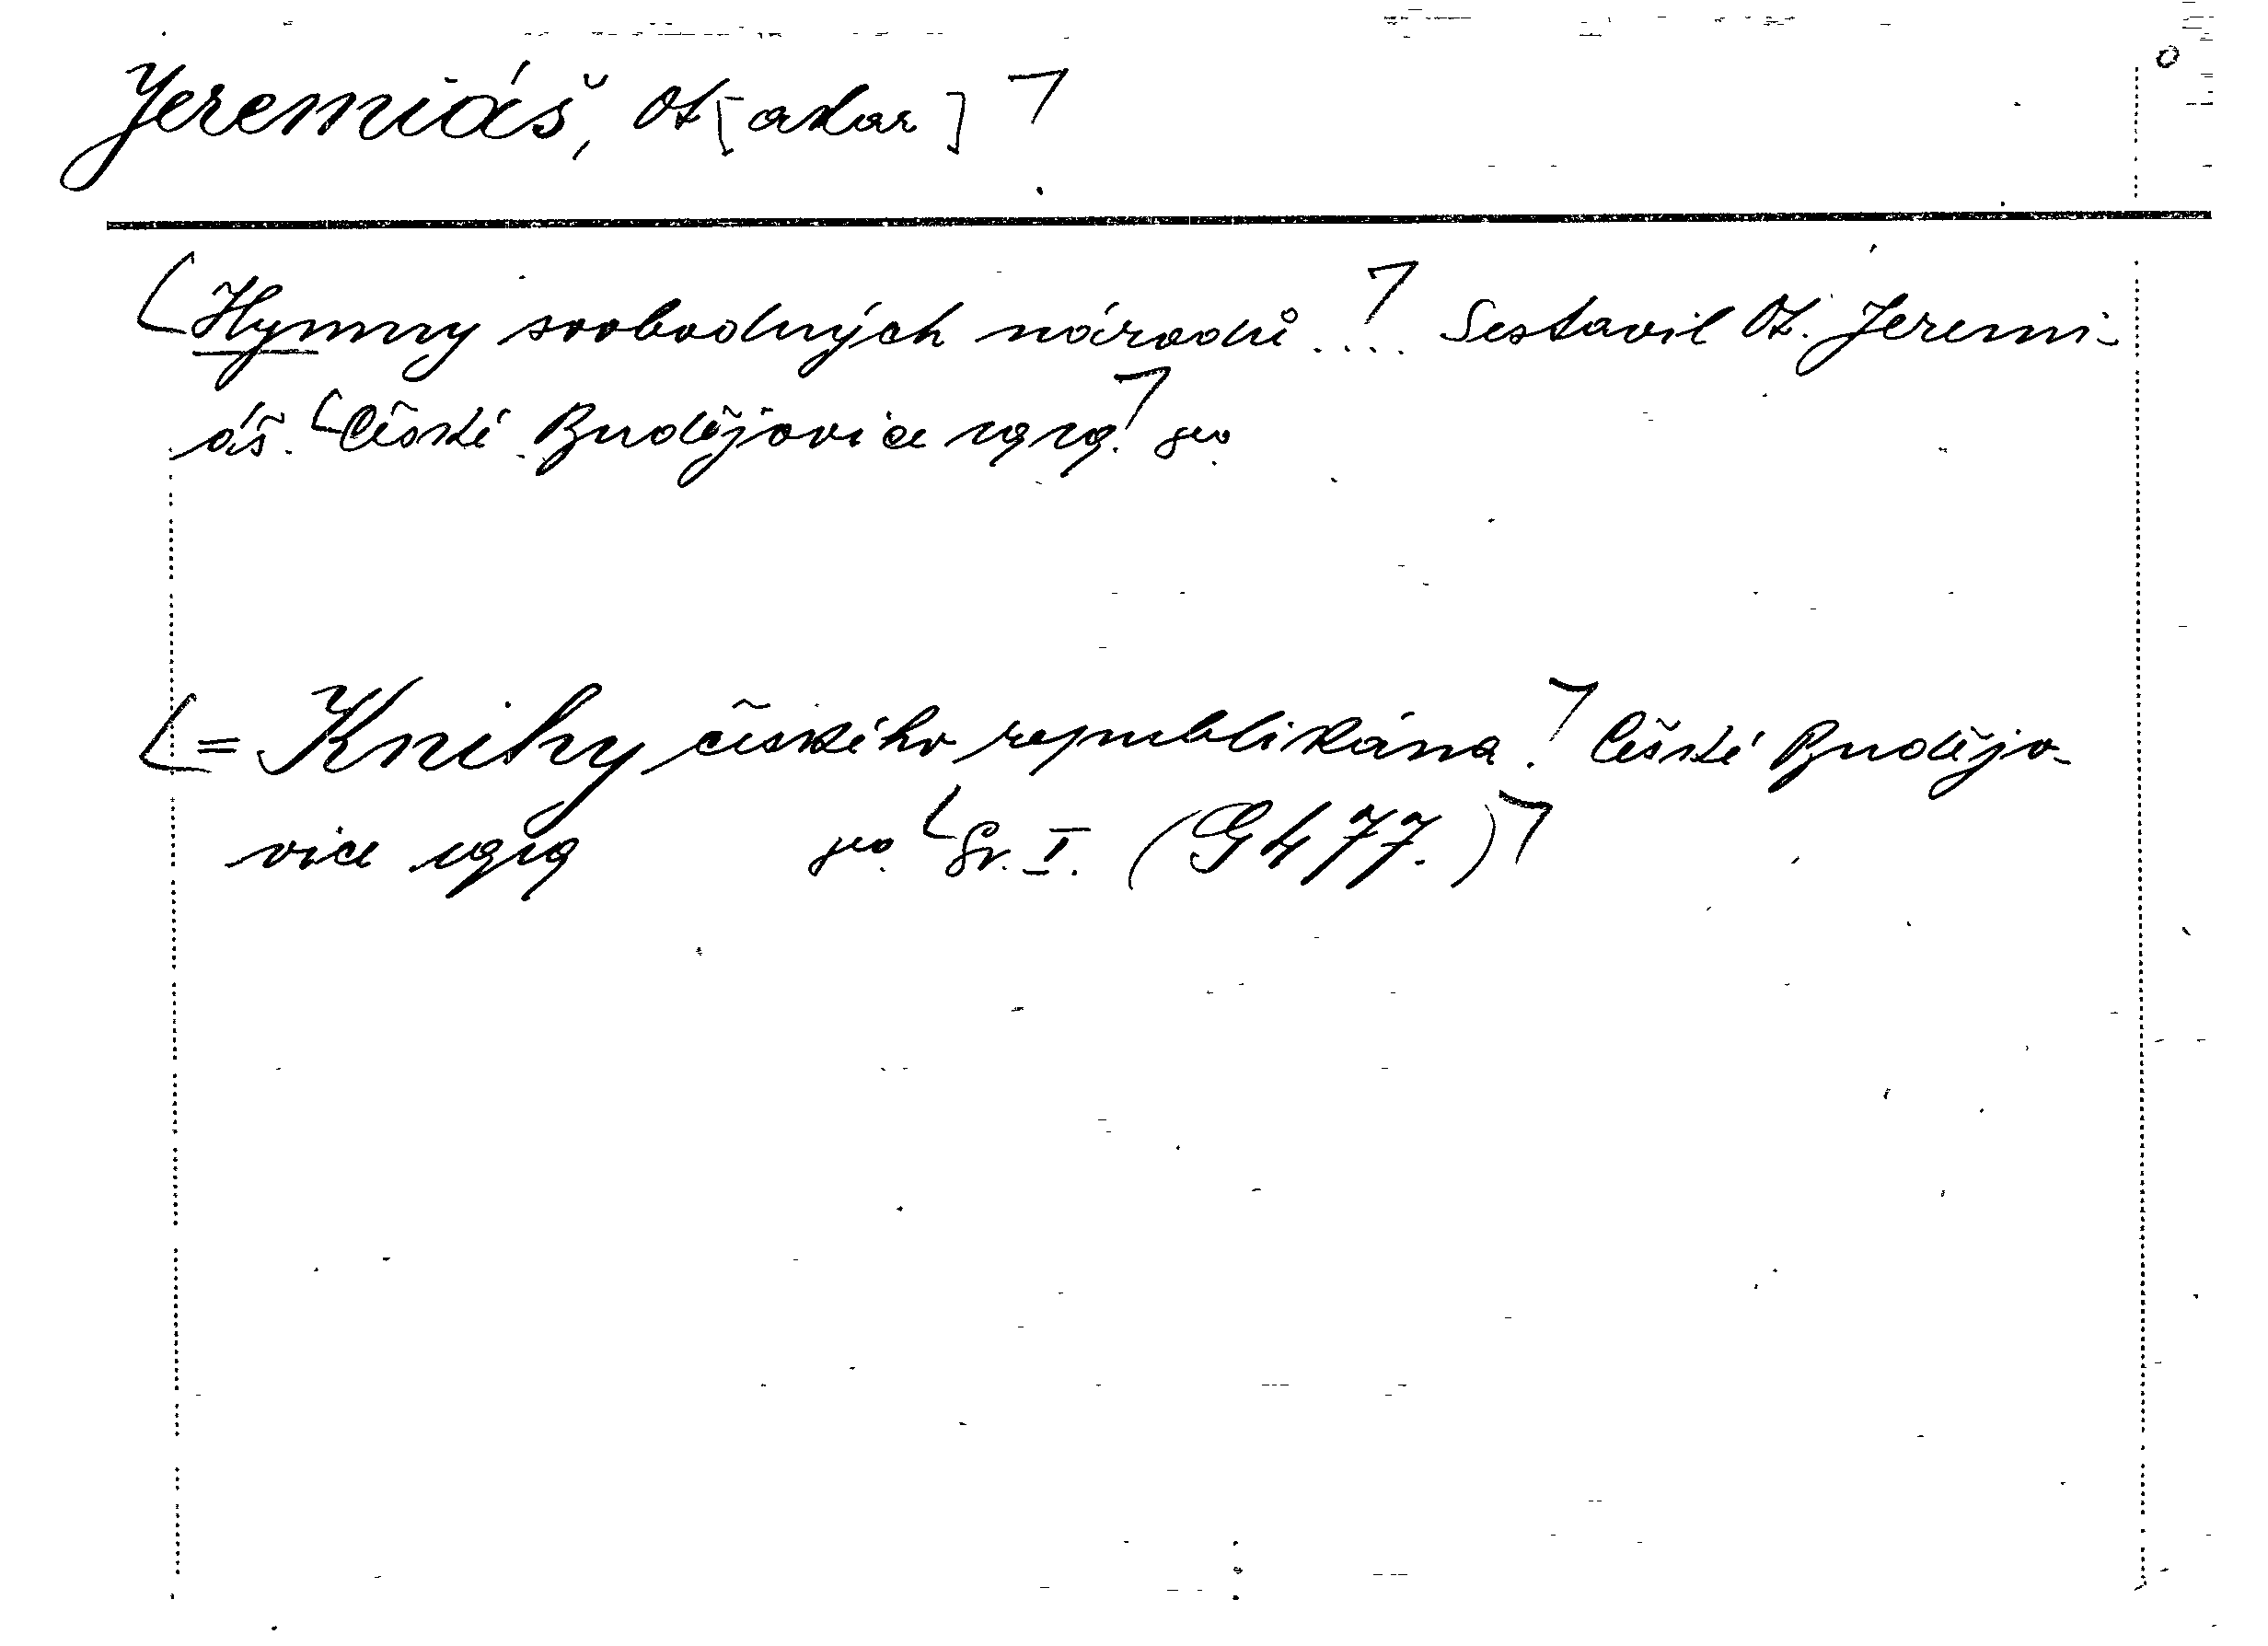 Jeremiáš, Ot[akar]
Hymny svobodných národů.... Sestavil Ot. Jeremi-
áš. České Budějovice 1919. 8vo.
= Knihy českého republikána. České Budějo-
vice 1919 8vo. Sv. I. (G 477.)